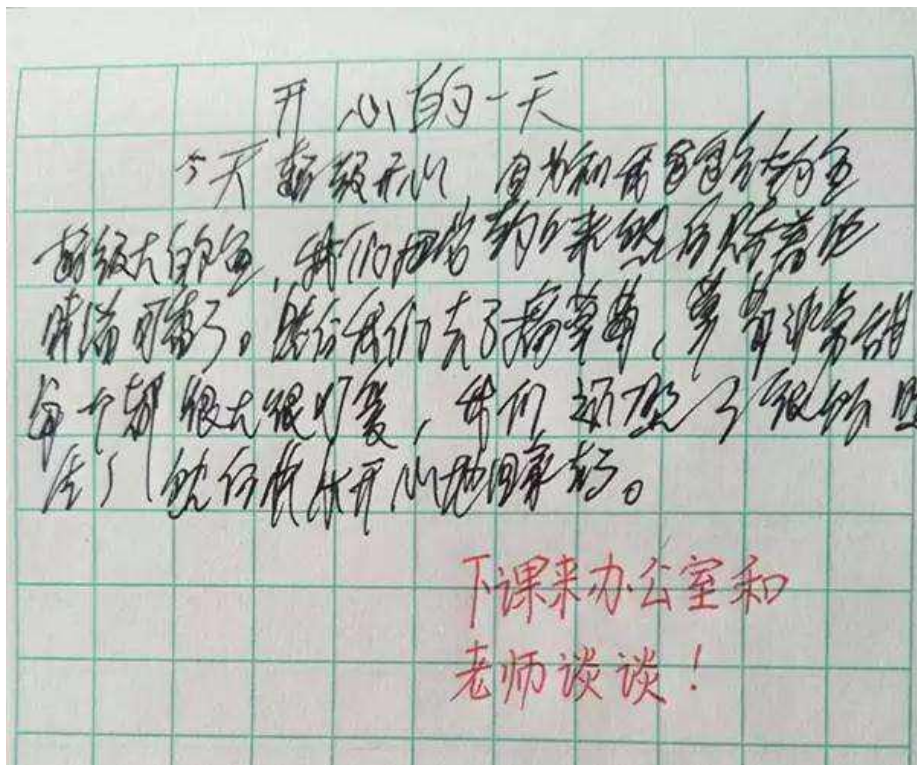 开心的一天
今天超级开心，因为和我爸爸去钓鱼
超级大的鱼，我们把它钓上来然后
可了。然后我们去了摘草莓，草莓非常甜
每个都很大很可爱，我们还了很
去了然后我们开心地回家了。
下课来办公室和
老师谈谈！